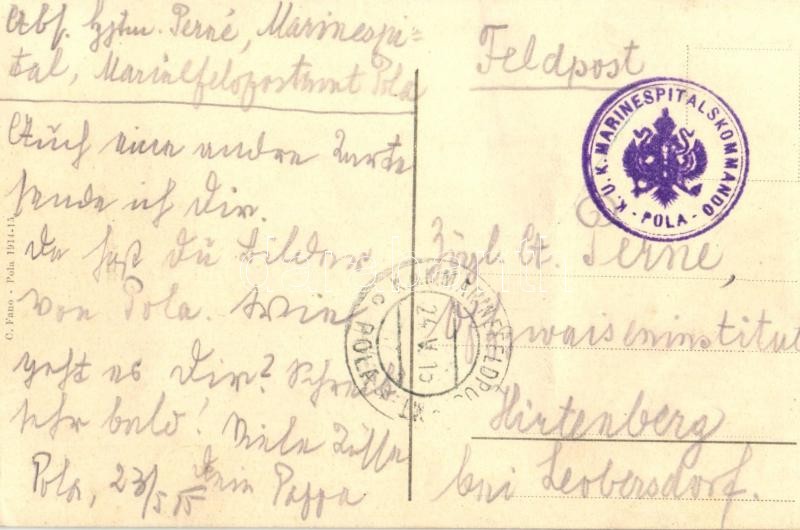 Abs. Hptm. Perné, Marinespi-
tal, Marinefeldpostamt Pola
Auch eine andre Karte
sende ich Dir.
Da hast Du Bilder
von Pola. Wie
geht es Dir? Schreib
sehr bald! Viele Küsse
Dein Pappa
Pola, 23/5 15
C. Fano - Pola 1914-15
Feldpost
K. U. K. MARINESPITALSKOMMANDO
- POLA -
Zögl. Perné,
Offwaiseninstitut
Hirtenberg
bei Leobersdorf.
MARINEFELDPOSTAMT
24 V 15
POLA